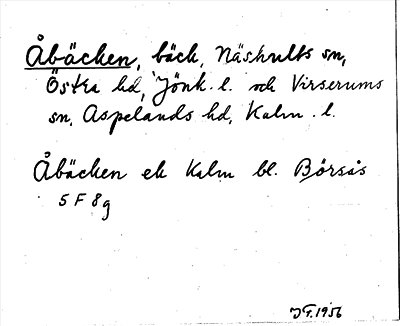 Åbäcken, bäck, Näshults sn,
Östra hd, Jönk. l. och Virserums
sn, Aspelands hd, Kalm. l.
Åbäcken ek Kalm bl. Börsås
5 F 8g
JF. 1956